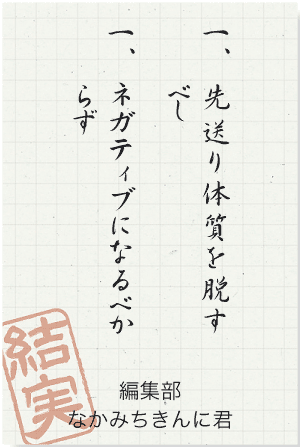 一、先送り体質を脱す
べし
一、ネガティブになるべか
らず
結実
編集部
なかみちきんに君